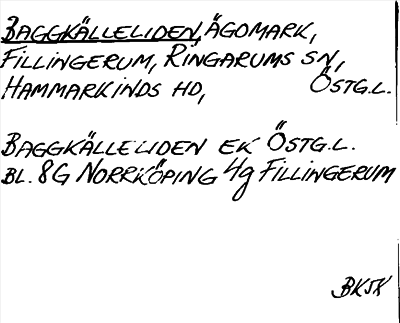 BAGGKÄLLELIDEN, ÄGOMARK,
FILLINGERUM, RINGARUMS SN,
HAMMARKINDS HD, ÖSTG.L.
BAGGKÄLLELIDEN EK ÖSTG.L.
BL. 8G NORRKÖPING 4g FILLINGERUM